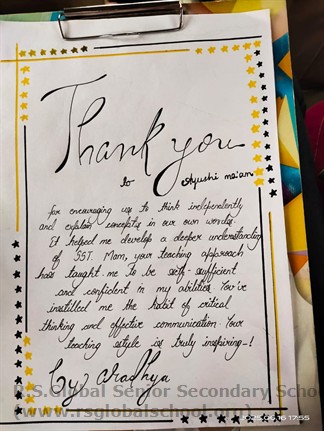 Thank you
to Ayushi ma'am
for encouraging us to think independently
and explain concepts in our own words.
It helped me develop a deeper understanding
of SST. Mam, your teaching approach
has taught me to be self-sufficient
and confident in my abilities. You've
instilled me the habit of critical
thinking and effective communication. Your
teaching style is truly inspiring-!
by Aradhya
R.S.Global Senior Secondary School
www.rsglobalschool
2025.06.16 17:55